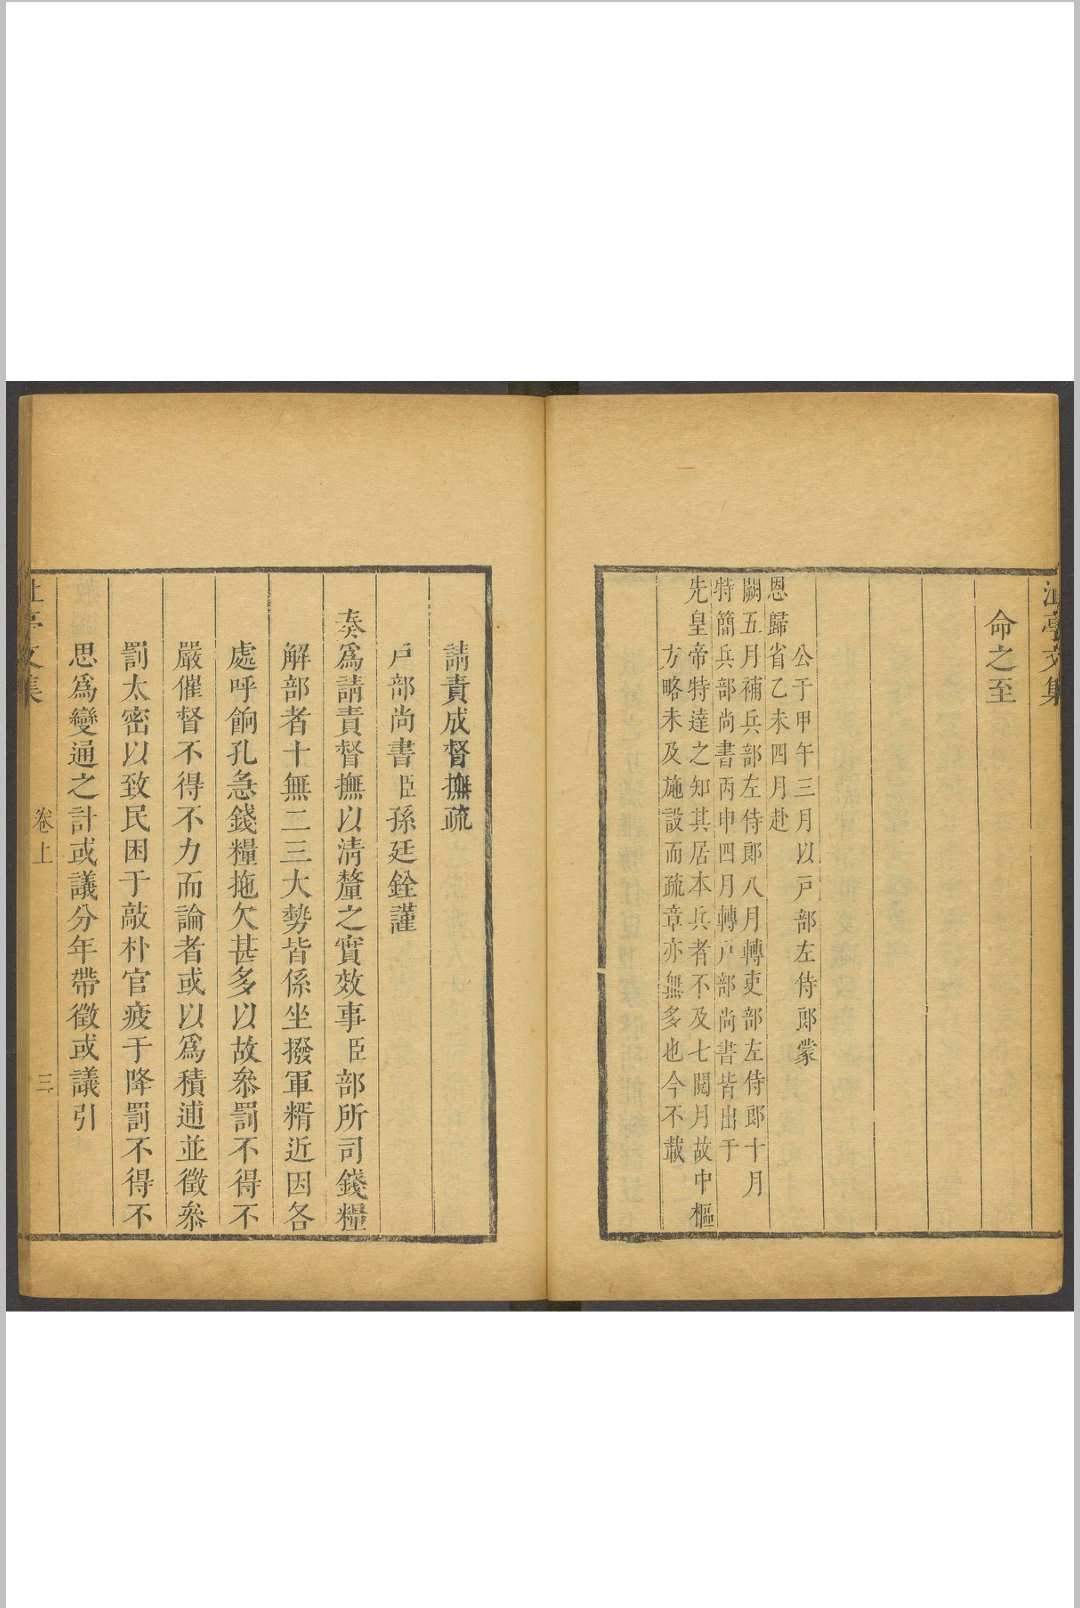 沚亭文集
命之至
公于甲午三月以戸部左侍郎蒙
恩歸省乙未四月赴
闕五月補兵部左侍郎八月轉吏部左侍郎十月
特簡兵部尚書丙申四月轉戸部尚書皆出于
先皇帝特達之知其居本兵者不及七閱月故中樞
方略未及施設而疏章亦無多也今不載
請責成督撫疏
戸部尚書臣孫廷銓謹
奏爲請責督撫以清釐之實效事臣部所司錢糧
解部者十無二三大勢皆係坐撥軍糈近因各
處呼餉孔急錢糧拖欠甚多以故叅罰不得不
嚴催督不得不力而論者或以爲積逋並徵叅
罰太密以致民困于敲朴官疲于降罰不得不
思爲變通之計或議分年帶徵或議引
沚亭文集
卷上
三